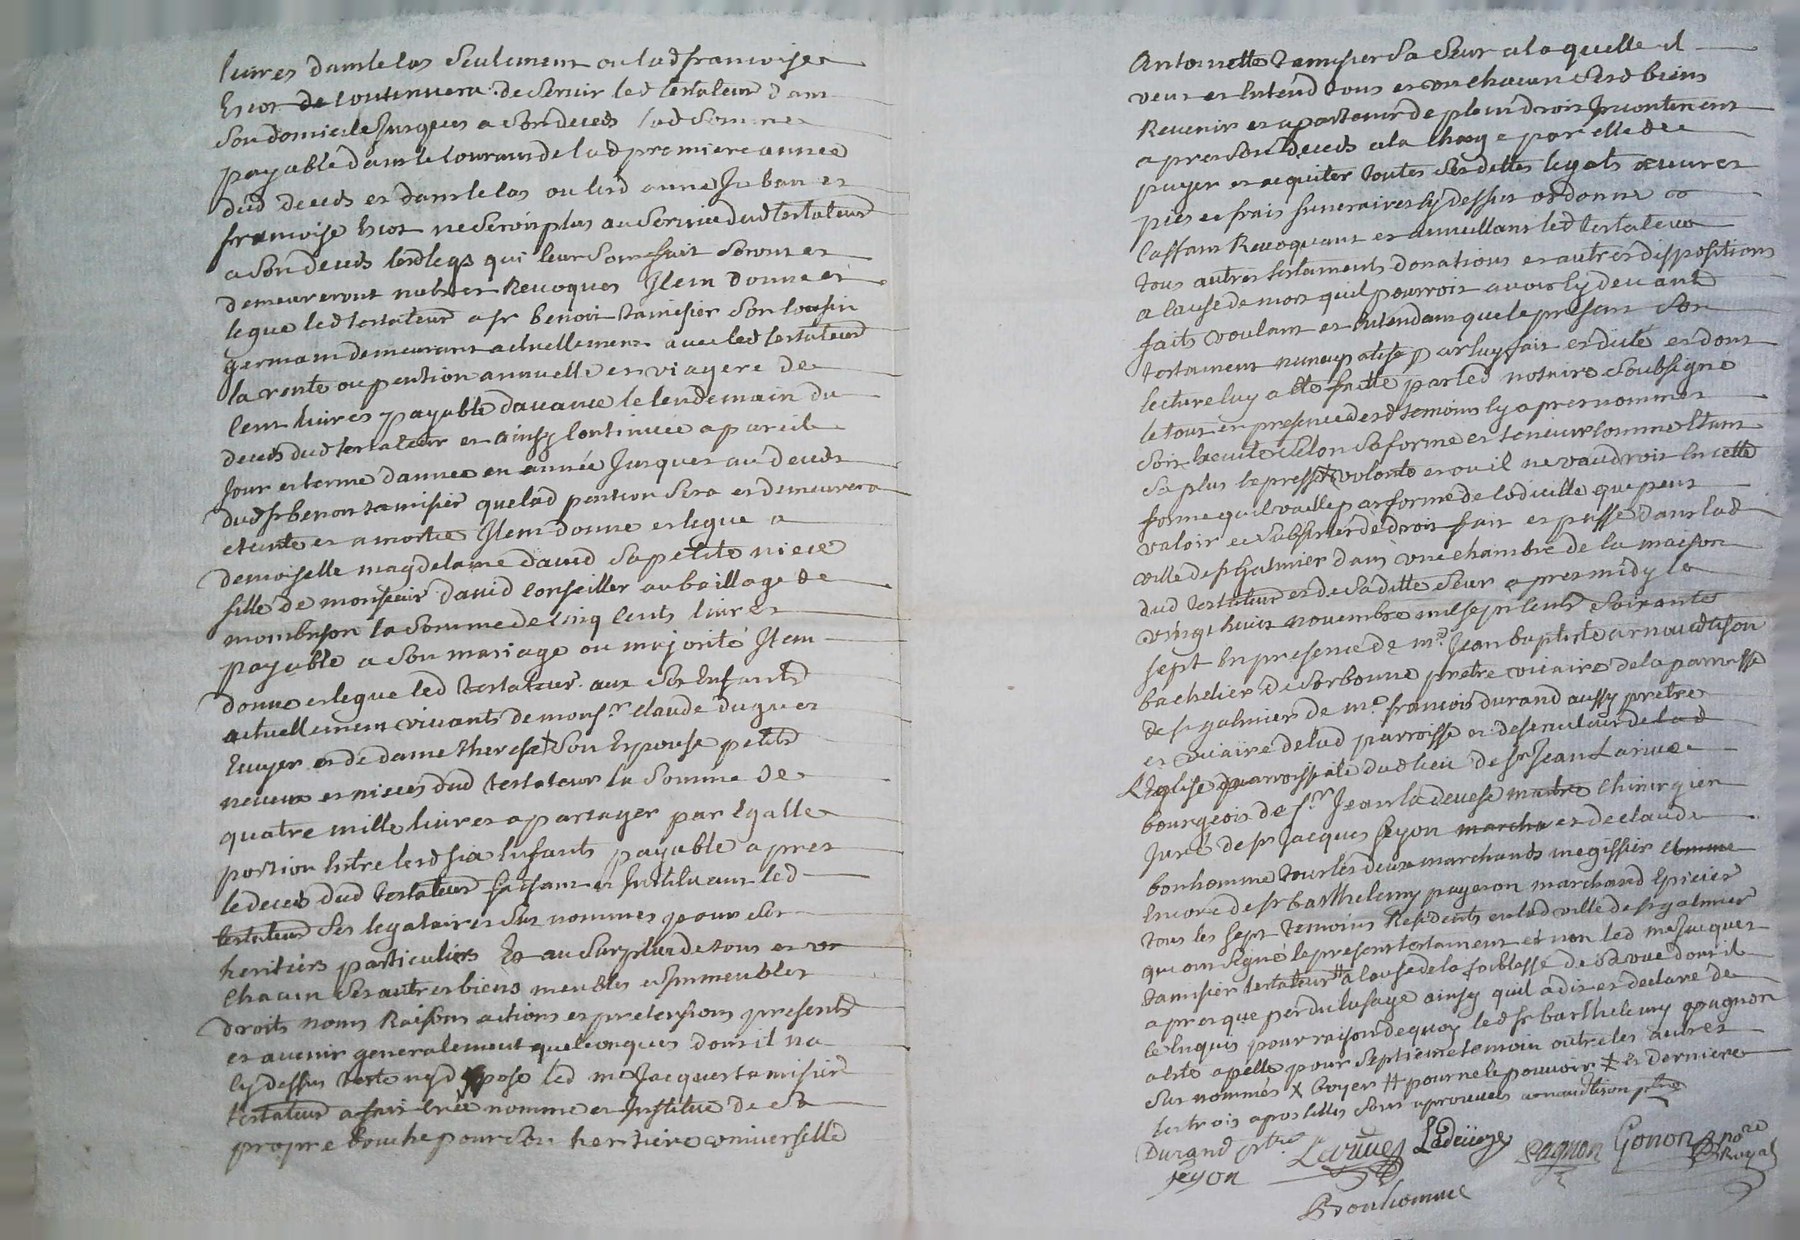 livres dans le cas seulement ou lad francoise
hiot de continuera de servir led testateur dans
son domicile jusques a son deceds lad somme
payable dans le courant de lad premiere année
dud deceds et dans le cas ou lesd anne et
francoise hiot ne seroit plus au service dud testateur
a son deceds lesd legs qui leur sont fait seront et
demeureront nuls et revoqués Item donne et
legue led testateur a sr benoit tamisier son cousin
germain demeurant actuellement avec led testateur
la rente ou pention annuelle et viagere de
cent livres payable davance le lendemain du
deceds dud testateur et ainsy continuée a pareil
jour et terme dannee en année jusques au deceds
dud sr benoit tamisier que lad pention sera et demeurera
eteinte et amortie Item donne et legue a
demoiselle magdelaine david sa petite niece
fille de monsieur david conseiller au baillage de
monbrison la somme de cinq cents livres
payable a son mariage ou majorité Item
donne et legue led testateur aux six enfants
actuellement vivants de monsr claude duguet
Ecuyer et de dame therese + son Epouse petits
neveux et nieces dud testateur la somme de
quatre mille livres a partager par Egalle
portion entre lesd six enfants payable apres
le deceds dud testateur faisant et instituant led
testateur ses legataires sus nommes pour ses
heritiers particuliers Et au surplus de tous et un
chacun ses autres biens meubles et immeubles
droits noms raisons actions et pretensions presents
et avenir generalement quelconques dont il na
cy dessus testé ny dispose led me Jacques tamisier
testateur a fait créé nomme et institue de sa
propre bouche pour son heritiere universelle
Antoinette tamisier sa seur a la quelle il
veut et entend tous et un chacun sesd biens
revenir et apartenir de plein droit incontinent
apres son deceds a la charge par elle de
payer et acquiter toutes ses dettes legats œuvres
pies et frais funeraires cy dessus ordonné
cassant revoquant et annullant led testateur
tous autres testaments donations et autres dispositions
a cause de mort quil pourroit avoir cy devant
faits voulant et entendant que le present son
testament nuncupatif par luy fait et dicté et dont
lecture luy a été faitte par led notaire soubsigné
le tout en presence desd temoins cy apres nommés
soit executé selon sa forme et teneur comme étant
sa plus expresse volonte et ou il ne vaudroit en cette
forme quil vaille par forme de codicille que peut
valoir et subsister de droit fait et passé dans lad
ville de st Galmier dans une chambre de la maison
dud testateur et de sa ditte seur apres midy le
vingt huit novembre mil sept cents soixante
sept En presence de mre Jean baptiste arnaudtison
bachelier de sorbonne pretre vicaire de la parroisse
de st galmier de me francois durand aussy pretre
et vicaire de lad parroisse et desserviteur de lad
L'Eglise parroissiale dud lieu de sr Jean Larive
bourgeois de sr Jean ladeveze maitre chirurgien
juré de sr Jacques jeyon marcha et de claude
bonhomme tous les deux marchands megissier comme
Encore de sr barthelemy pagnon marchand Epicier
tous les sept temoins residents en lad ville de st galmier
qui ont signé le present testament et non led me Jacques
tamisier testateur # a cause de la foiblesse de sa vue dont il
a presque perdu lusage ainsy quil a dit et declaré de
ce enquis pour raison de quoy led sr barthelemy pagnon
a été apellé pour septieme temoin outre les autres
sus nommés x boyer # pour ne le pouvoir x et derniere
les trois apostilles sont aprouvees arnaudtison ptre
Durand ptre Larive Ladeveze pagnon Gonon nore Royal
jeyon
Bonhomme